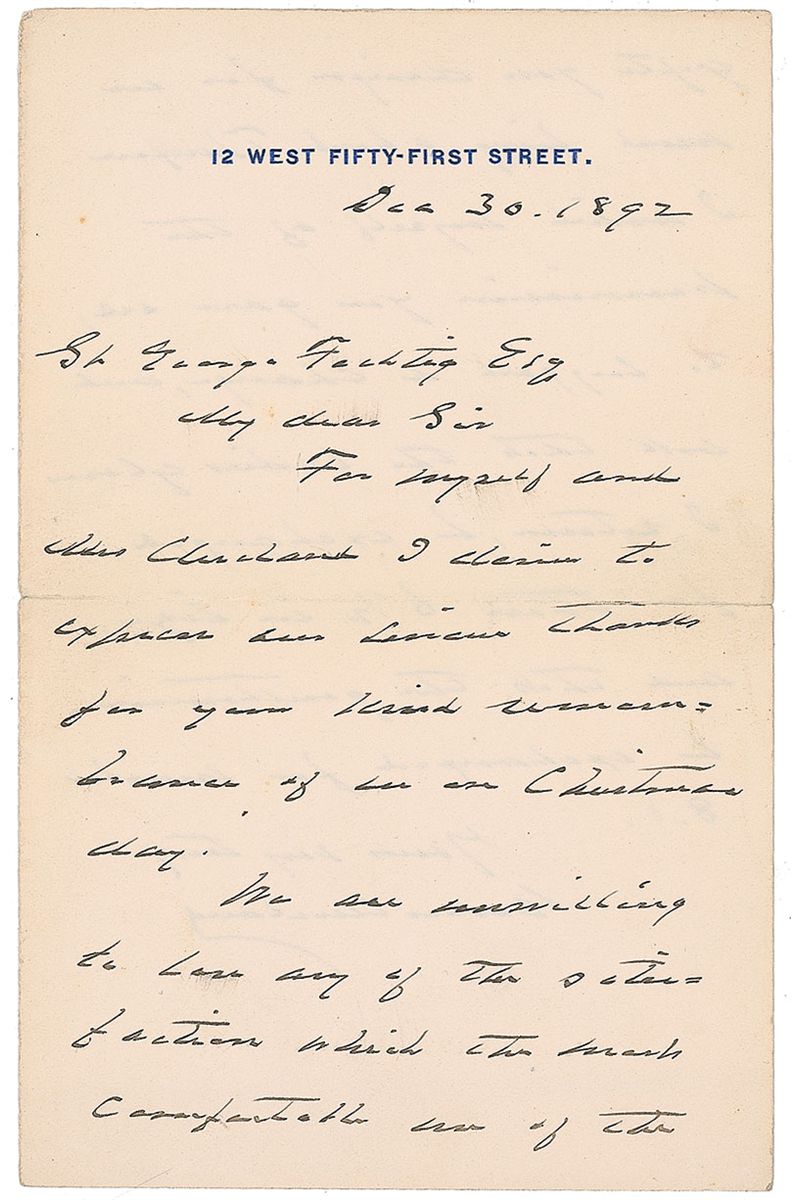 12 WEST FIFTY-FIRST STREET.
Dec 30. 1892
George Esq
My dear Sir
For myself and
Mrs Cleveland I desire to
express our sincere thanks
for your kind remem=
brance of us on Christmas
day.
We are unwilling
to lose any of the satis=
faction which the most
comfortable use of the